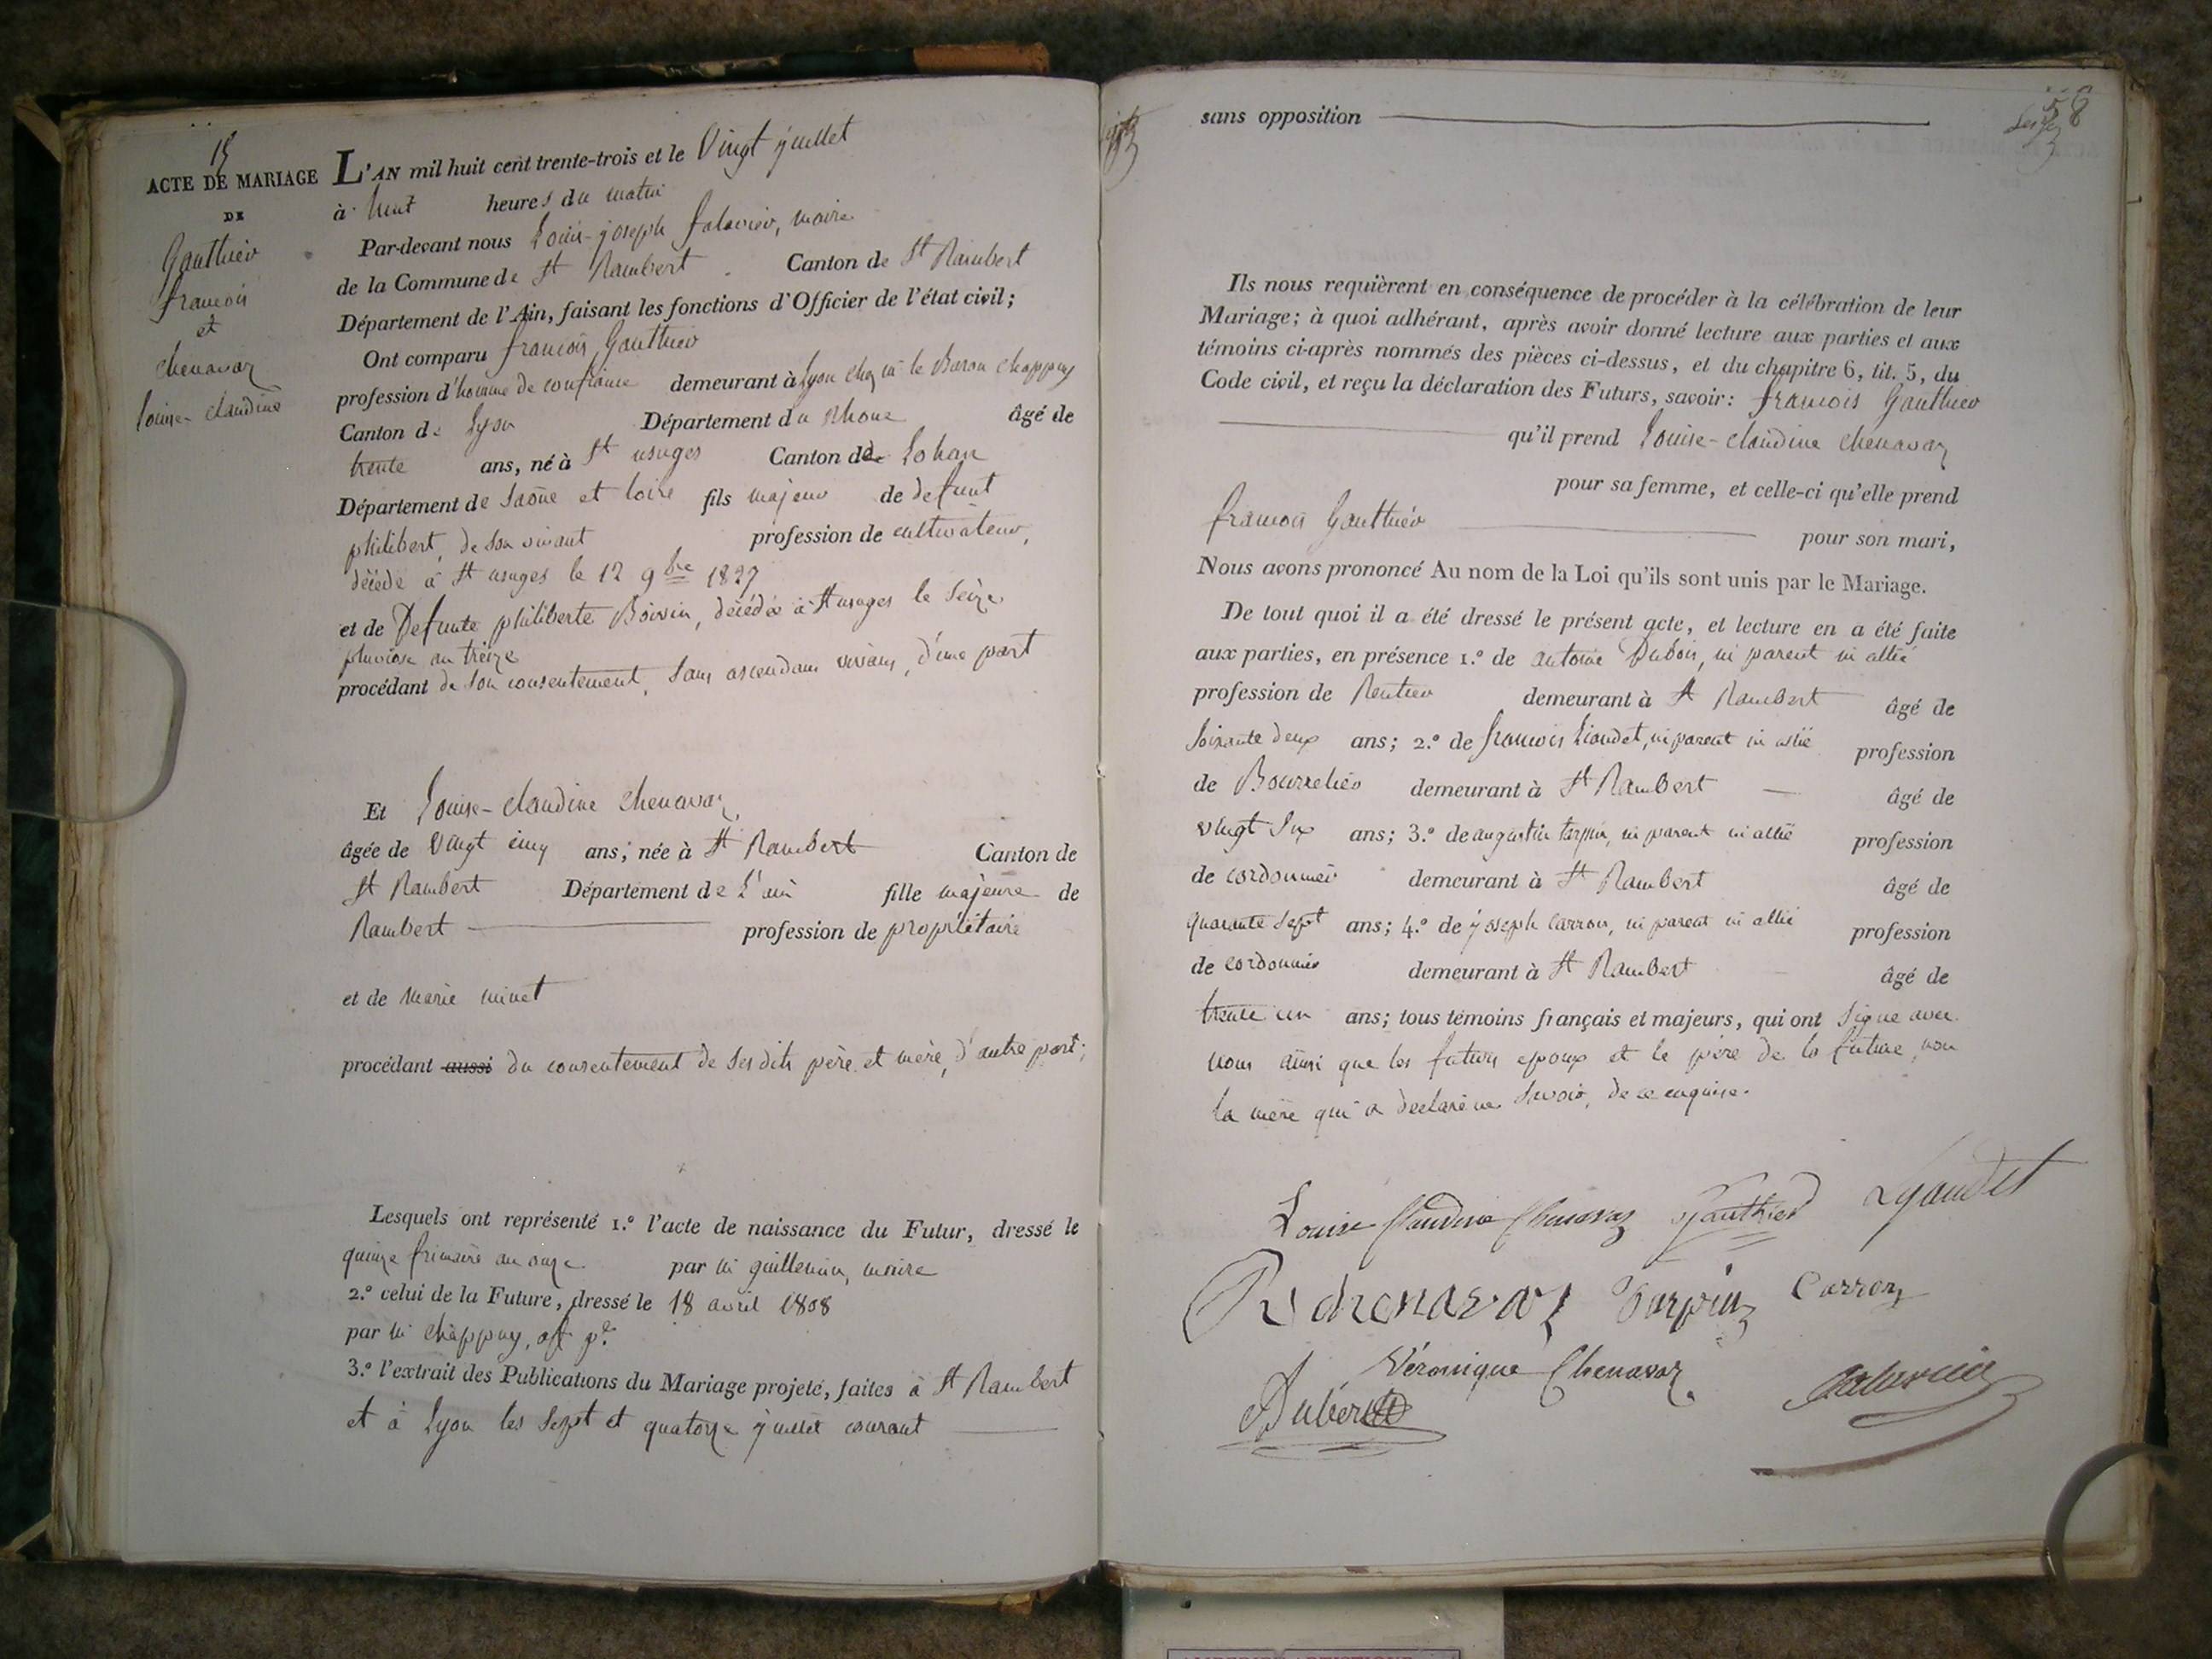 15
ACTE DE MARIAGE
DE
Gauthier
francois
et
chenavaz
louise-claudine
L'AN mil huit cent trente-trois et le Vingt juillet
à huit heures du matin
Par-devant nous Louis-joseph falavier, maire
de la Commune de St Rambert Canton de St Rambert
Département de l'Ain, faisant les fonctions d'Officier de l'état civil;
Ont comparu francois Gauthier
profession d'homme de confiance demeurant à Lyon chez mr le Baron chappuy
Canton de Lyon Département du rhone âgé de
trente ans, né à St usuges Canton de Lohan
Département de Saône et loire fils majeur de defunt
philibert, de son vivant profession de cultivateur,
décédé à St usuges le 12 9bre 1827
et de Defunte philiberte Boivin, décédée à St usuges le Seize
pluviose an treize
procédant de son consentement, sans ascendans vivans, d'une part
Et Louise-claudine chenavaz,
âgée de Vingt cinq ans, née à St Rambert Canton de
St Rambert Département de L'ain fille majeure de
Rambert profession de propriétaire
et de marie minet
procédant aussi du consentement de ses dits père et mère, d'autre part;
Lesquels ont représenté 1.º l'acte de naissance du Futur, dressé le
quinze frimaire an onze par mr guillemin, maire
2.º celui de la Future, dressé le 18 avril 1808
par mr chappuy, off. p.
3.º l'extrait des Publications du Mariage projeté, faites à St Rambert
et à Lyon les sept et quatorze juillet courant
58
sans opposition
Ils nous requièrent en conséquence de procéder à la célébration de leur
Mariage; à quoi adhérant, après avoir donné lecture aux parties et aux
témoins ci-après nommés des pièces ci-dessus, et du chapitre 6, tit. 5, du
Code civil, et reçu la déclaration des Futurs, savoir: francois Gauthier
qu'il prend Louise-claudine chenavaz
pour sa femme, et celle-ci qu'elle prend
francois Gauthier pour son mari,
Nous avons prononcé Au nom de la Loi qu'ils sont unis par le Mariage.
De tout quoi il a été dressé le présent acte, et lecture en a été faite
aux parties, en présence 1.º de antoine Dubois, ni parent ni allié
profession de Rentier demeurant à St Rambert âgé de
soixante deux ans; 2.º de francois Liaudet, ni parent ni allié profession
de Bourrelier demeurant à St Rambert âgé de
vingt six ans; 3.º de augustin tarpin, ni parent ni allié profession
de cordonnier demeurant à St Rambert âgé de
quarante sept ans; 4.º de joseph carron, ni parent ni allié profession
de cordonnier demeurant à St Rambert âgé de
trente un ans; tous témoins français et majeurs, qui ont signé avec
nous ainsi que les futurs epoux et le père de la future, non
la mère qui a declaré ne savoir, de ce enquise.
Louise Claudine Chenavaz Gauthier Lyaudet
R chenavaz Tarpin Carron
Véronique Chenavaz